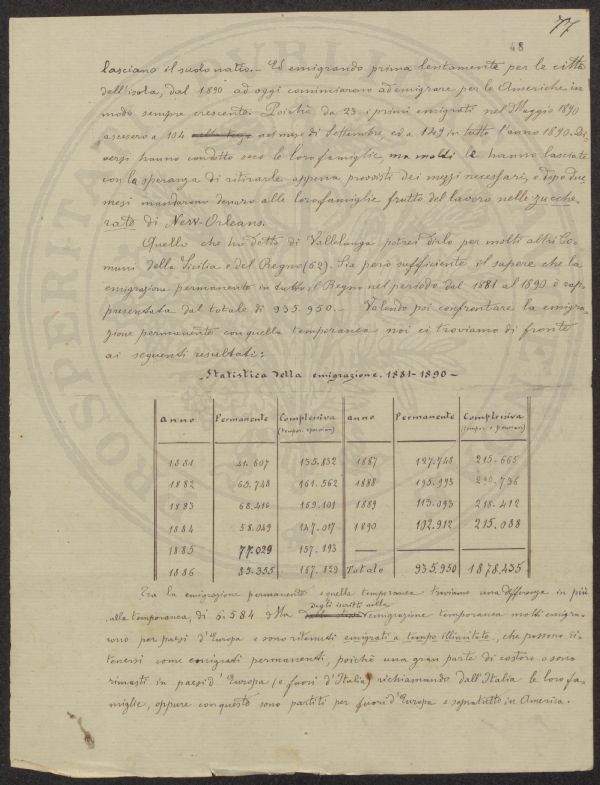 77
48
lasciano il suolo natio.- Ed emigrando prima lentamente per le città
dell'isola, dal 1890 ad oggi cominciarono ad emigrare per le Americhe in
modo sempre crescente. Poichè da 23 i primi emigrati nel Maggio 1890
ascesero a 104 nel mese di Settembre, ed a 149 in tutto l'anno 1890. Di
versi hanno condotto seco le loro famiglie, ma molti le hanno lasciate
con la speranza di ritirarle appena provvisti dei mezzi necessari, e dopo due
mesi mandarono denaro alle loro famiglie frutto del lavoro nelle zucche
rate di New-Orleans.
Quello che ho detto di Vallelunga potrei dirlo per molti altri Co-
muni della Sicilia e del Regno (62). Sia però sufficiente il sapere che la
emigrazione permanente in tutto il Regno nel periodo dal 1881 al 1890 è rap-
presentata dal totale di 935.950.- Volendo poi confrontare la emigra-
zione permanente con quella temporanea noi ci troviamo di fronte
ai seguenti resultati:
Statistica della emigrazione 1881-1890 -
anno Permanente Complessiva anno Permanente Complessiva
(tempor. e perman) (tempor. e perman)
1881 41.607 135.832 1887 127.748 215.665
1882 65.748 161.562 1888 195.993 290.736
1883 68.416 169.101 1889 113.093 218.412
1884 58.049 147.017 1890 102.912 215.088
1885 77.029 157.193 — —
1886 85.355 167.829 Totale 935.950 1878.435
Tra la emigrazione permanente e quella temporanea troviamo una differenza in più
alla temporanea, di 6.584 Ma
degli iscritti nella
emigrazione temporanea molti emigra-
rono per paesi d'Europa e sono ritenuti emigrati a tempo illimitato, che possono ri-
tenersi come emigrati permanenti, poichè una gran parte di costoro o sono
rimasti in paesi d'Europa (e fuori d'Italia) richiamando dall'Italia le loro fa-
miglie, oppure con questo sono partiti per fuori d'Europa e sopratutto in America.